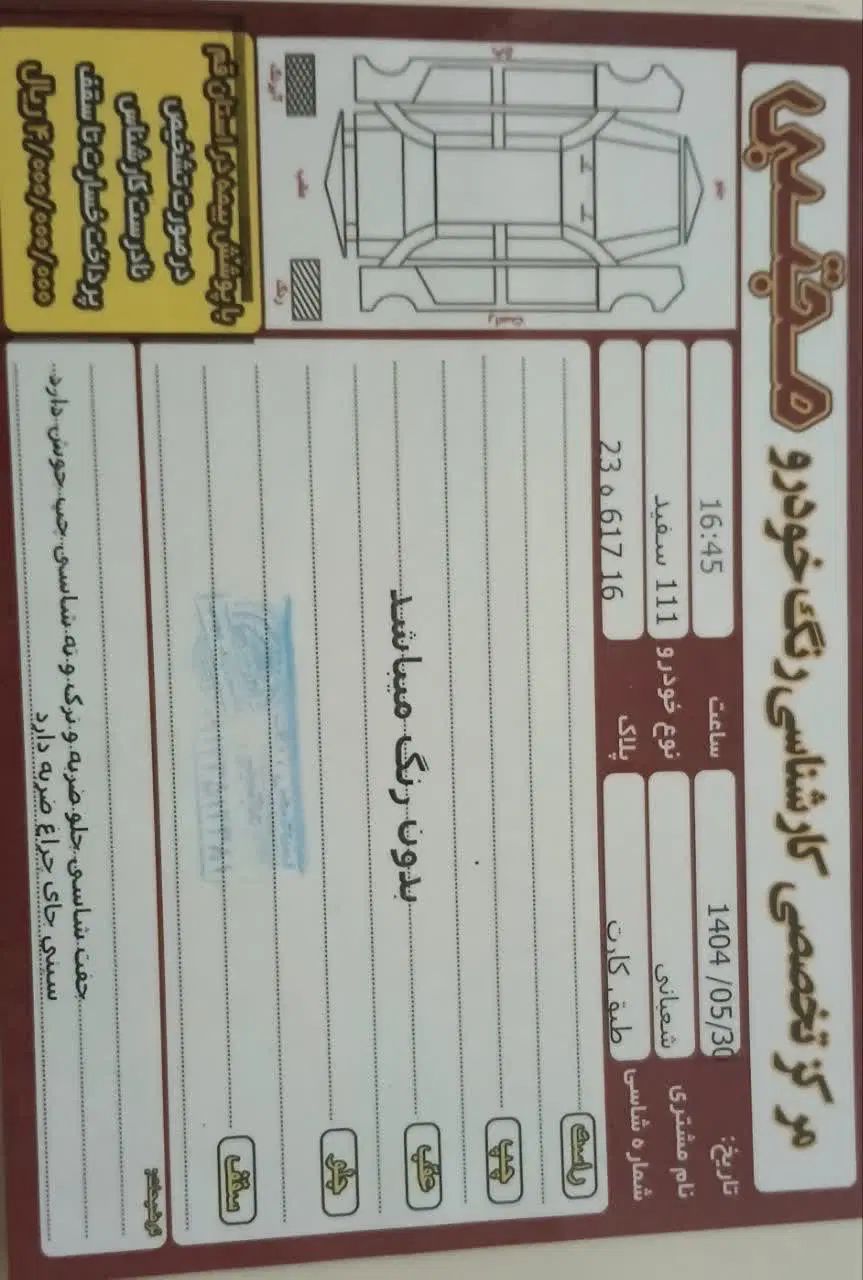 مرکز تخصصی کارشناسی رنگ خودرو مجتبی
تاریخ: 1404/05/30
ساعت 16:45
نام مشتری شعبانی
نوع خودرو 111 سفید
شماره شاسی طبق کارت
پلاک 23 ه 617 16
جلو
عقب
چپ
راست
رنگ
راست
چپ
عقب
جلو
سقف
بدون رنگ میباشد
با پوشش بیمه در استان قم
در صورت تشخیص
نادرست کارشناس
پرداخت خسارت تا سقف
۴/۰۰۰/۰۰۰/۰۰۰ ریال
توضیحات:
جفت شاسی جلو ضربه و ترک و ته شاسی چپ جوش دارد
سینی جای چراغ ضربه دارد